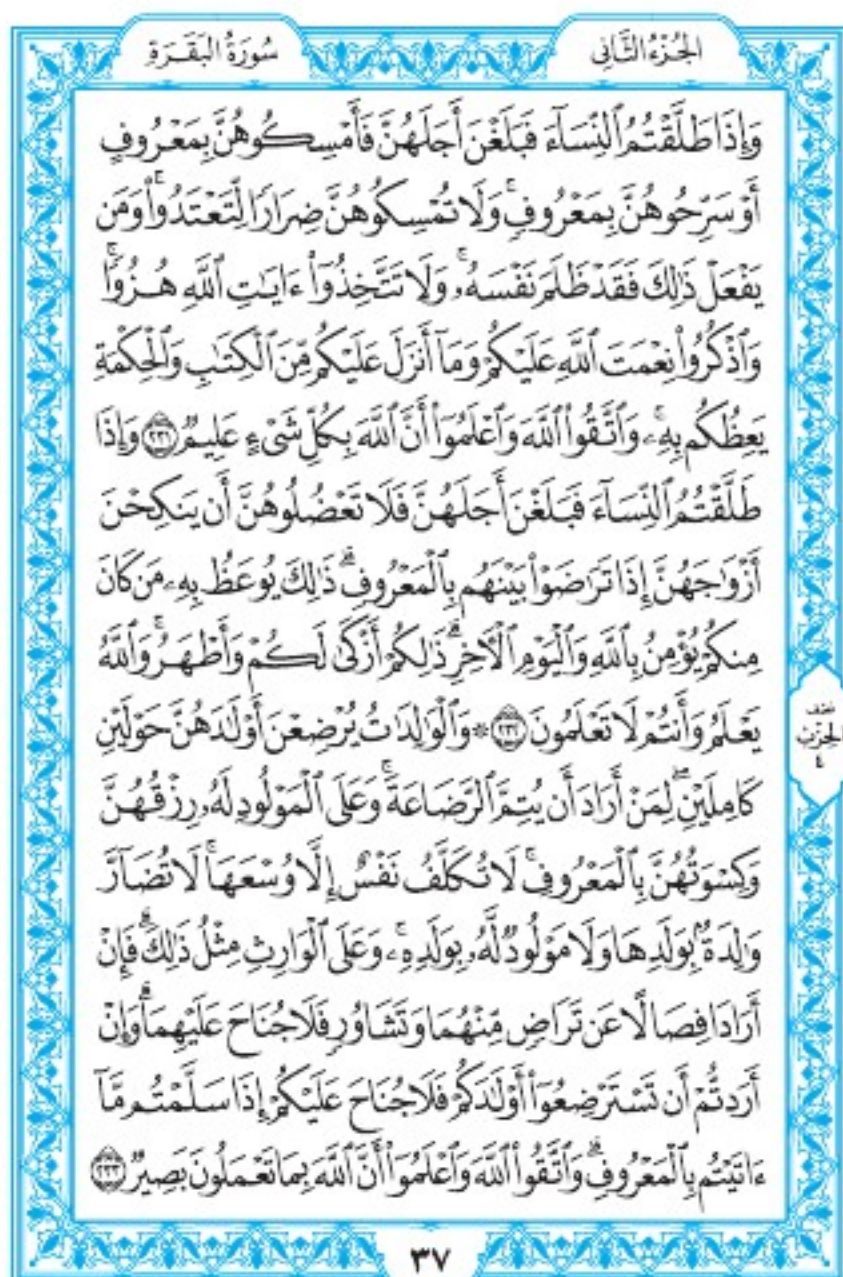 الجُزْءُ الثَّانِى
سُورَةُ البَقَرَةِ
وَإِذَا طَلَّقْتُمُ ٱلنِّسَآءَ فَبَلَغْنَ أَجَلَهُنَّ فَأَمْسِكُوهُنَّ بِمَعْرُوفٍ
أَوْ سَرِّحُوهُنَّ بِمَعْرُوفٍۚ وَلَا تُمْسِكُوهُنَّ ضِرَارًا لِّتَعْتَدُوا۟ۚ وَمَن
يَفْعَلْ ذَٰلِكَ فَقَدْ ظَلَمَ نَفْسَهُۥۚ وَلَا تَتَّخِذُوٓا۟ ءَايَٰتِ ٱللَّهِ هُزُوًاۚ
وَٱذْكُرُوا۟ نِعْمَتَ ٱللَّهِ عَلَيْكُمْ وَمَآ أَنزَلَ عَلَيْكُم مِّنَ ٱلْكِتَٰبِ وَٱلْحِكْمَةِ
يَعِظُكُم بِهِۦۚ وَٱتَّقُوا۟ ٱللَّهَ وَٱعْلَمُوٓا۟ أَنَّ ٱللَّهَ بِكُلِّ شَىْءٍ عَلِيمٌ ٢٣١ وَإِذَا
طَلَّقْتُمُ ٱلنِّسَآءَ فَبَلَغْنَ أَجَلَهُنَّ فَلَا تَعْضُلُوهُنَّ أَن يَنكِحْنَ
أَزْوَٰجَهُنَّ إِذَا تَرَٰضَوْا۟ بَيْنَهُم بِٱلْمَعْرُوفِۗ ذَٰلِكَ يُوعَظُ بِهِۦ مَن كَانَ
مِنكُمْ يُؤْمِنُ بِٱللَّهِ وَٱلْيَوْمِ ٱلْءَاخِرِۗ ذَٰلِكُمْ أَزْكَىٰ لَكُمْ وَأَطْهَرُۚ وَٱللَّهُ
يَعْلَمُ وَأَنتُمْ لَا تَعْلَمُونَ ٢٣٢ * وَٱلْوَٰلِدَٰتُ يُرْضِعْنَ أَوْلَٰدَهُنَّ حَوْلَيْنِ
كَامِلَيْنِۖ لِمَنْ أَرَادَ أَن يُتِمَّ ٱلرَّضَاعَةَۚ وَعَلَى ٱلْمَوْلُودِ لَهُۥ رِزْقُهُنَّ
وَكِسْوَتُهُنَّ بِٱلْمَعْرُوفِۚ لَا تُكَلَّفُ نَفْسٌ إِلَّا وُسْعَهَاۚ لَا تُضَآرَّ
وَٰلِدَةٌۢ بِوَلَدِهَا وَلَا مَوْلُودٌ لَّهُۥ بِوَلَدِهِۦۚ وَعَلَى ٱلْوَارِثِ مِثْلُ ذَٰلِكَۗ فَإِنْ
أَرَادَا فِصَالًا عَن تَرَاضٍ مِّنْهُمَا وَتَشَاوُرٍ فَلَا جُنَاحَ عَلَيْهِمَاۗ وَإِنْ
أَرَدتُّمْ أَن تَسْتَرْضِعُوٓا۟ أَوْلَٰدَكُمْ فَلَا جُنَاحَ عَلَيْكُمْ إِذَا سَلَّمْتُم مَّآ
ءَاتَيْتُم بِٱلْمَعْرُوفِۗ وَٱتَّقُوا۟ ٱللَّهَ وَٱعْلَمُوٓا۟ أَنَّ ٱللَّهَ بِمَا تَعْمَلُونَ بَصِيرٌ ٢٣٣
نصف
الحِزْبِ
٤
٣٧